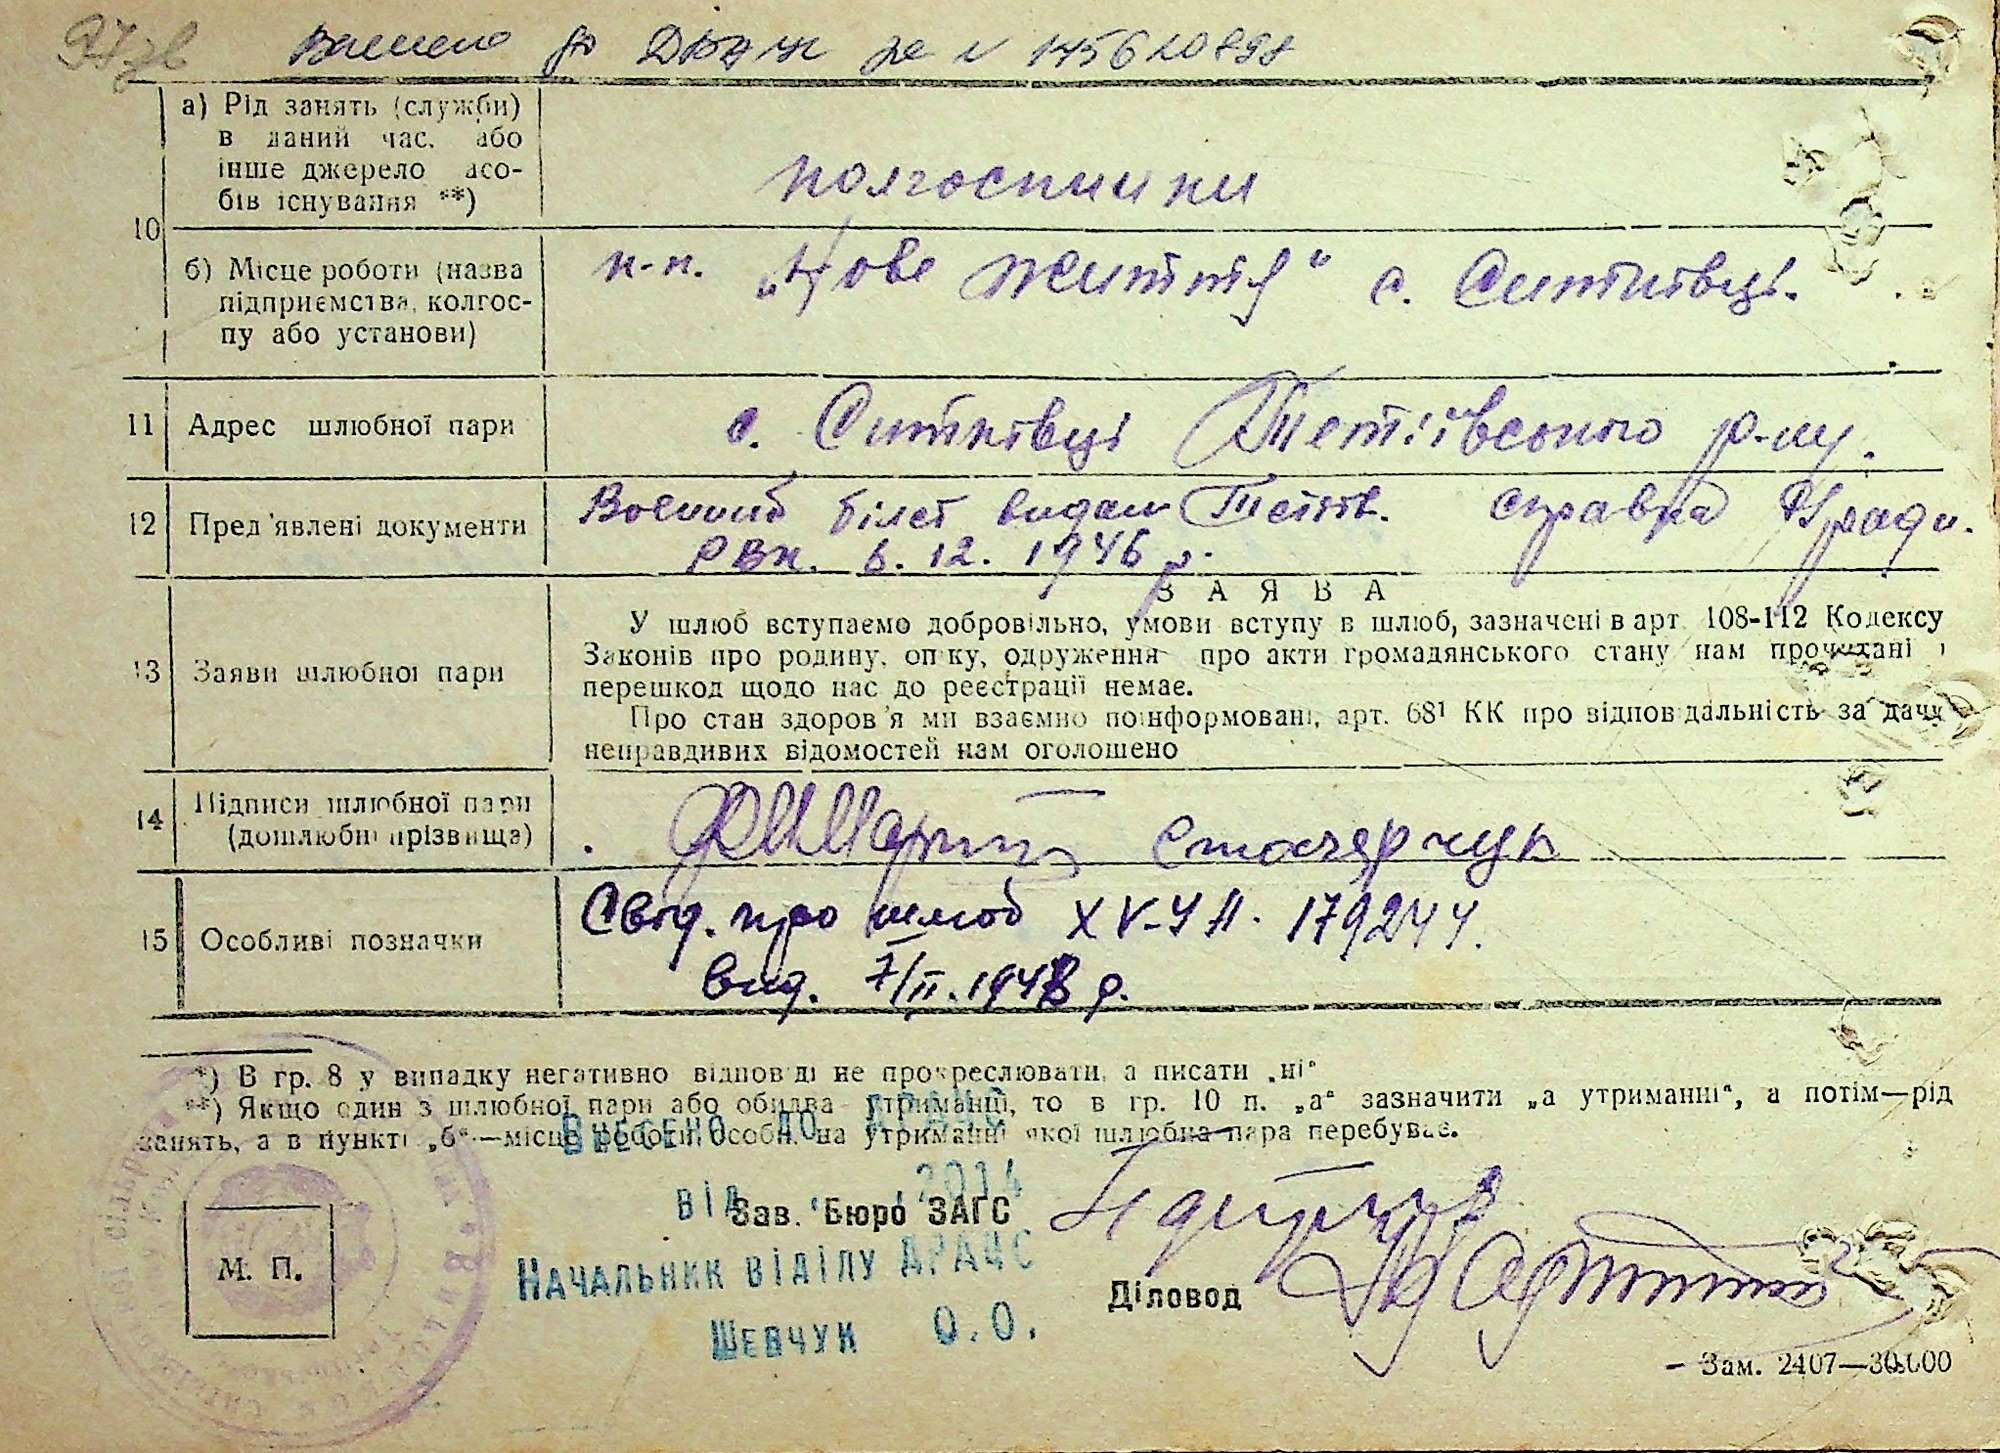 Внесено до ДРАЦС за №
10
а) Рід занять (служби)
в даний час, або
інше джерело засо-
бів існування **)
колгоспники
б) Місце роботи (назва
підприємства, колгос-
пу або установи)
к-п. „Нове життя" с. Ситківці.
11 Адрес шлюбної пари
с. Ситківці Тетіївського р-ну.
12 Пред'явлені документи
Воєнний білет видан Тетіїв. справка
РВК. 6. 12. 1946 р.
ЗАЯВА
13 Заяви шлюбної пари
У шлюб вступаємо добровільно, умови вступу в шлюб, зазначені в арт. 108-112 Кодексу
Законів про родину, опіку, одруження про акти громадянського стану нам прочитані і
перешкод щодо нас до реєстрації немає.
Про стан здоров'я ми взаємно поінформовані, арт. 68¹ КК про відповідальність за дачу
неправдивих відомостей нам оголошено
14 Підписи шлюбної пари
(дошлюбні прізвища)
Столярчук
15 Особливі позначки
Свід. про шлюб 179244.
вид. 7/II. 1948 р.
*) В гр. 8 у випадку негативно відповіді не прокреслювати, а писати „ні"
**) Якщо один з шлюбної пари або обидва утриманці, то в гр. 10 п. „а" зазначити „а утриманні", а потім—рід
занять, а в пункті „б"—місце роботи особи, на утриманні якої шлюбна пара перебуває.
Внесено до ДРАЦС
від 2014
Зав. Бюро ЗАГС
Начальник відділу ДРАЦС
Шевчук О.О.
Діловод
М. П.
Зам. 2407—30.000